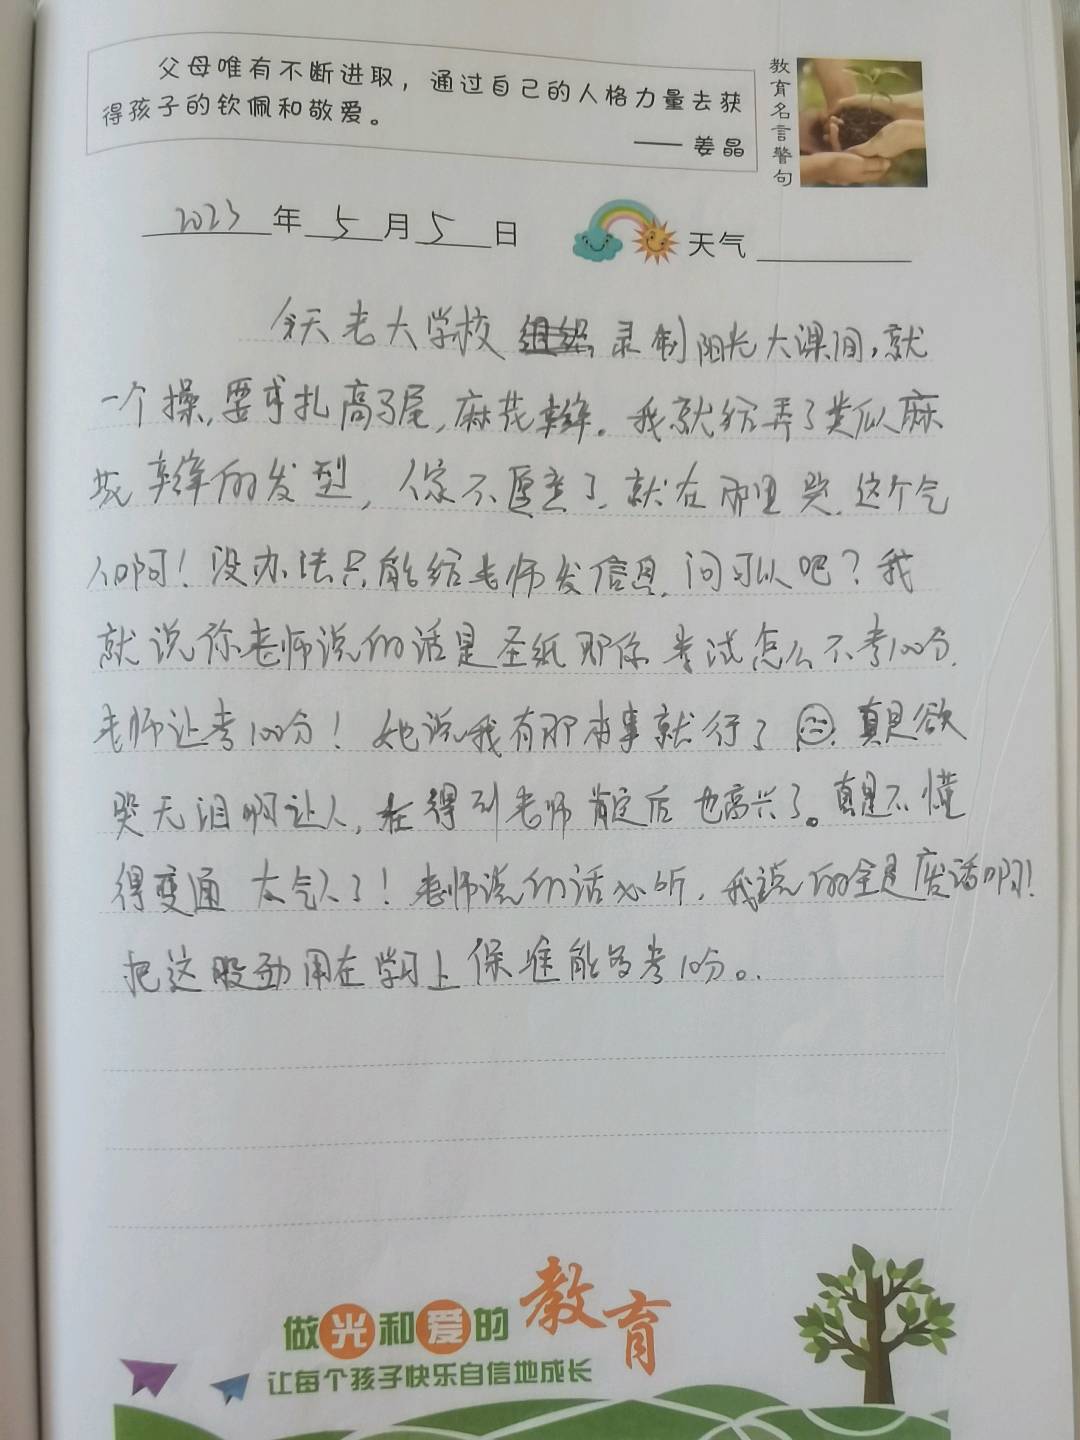 父母唯有不断进取，通过自己的人格力量去获
得孩子的钦佩和敬爱。
—— 姜晶
教育名言警句
2023年5月5日 天气
今天老大学校 录制阳光大课间，就
一个操，要求扎高马尾，麻花辫。我就给弄了类似麻
花辫的发型，人家不愿意了，就在那里哭，这个气
人啊！没办法只能给老师发信息，问可以吧？我
就说你老师说的话是圣纸那你考试怎么不考100分，
老师让考100分！她说我有那本事就行了 真是欲
哭无泪啊让人，在得到老师肯定后也高兴了。真是不懂
得变通 太气人了！老师说的话必听，我说的全是废话啊！
把这股劲用在学习上保准能多考10分。
做光和爱的教育
让每个孩子快乐自信地成长